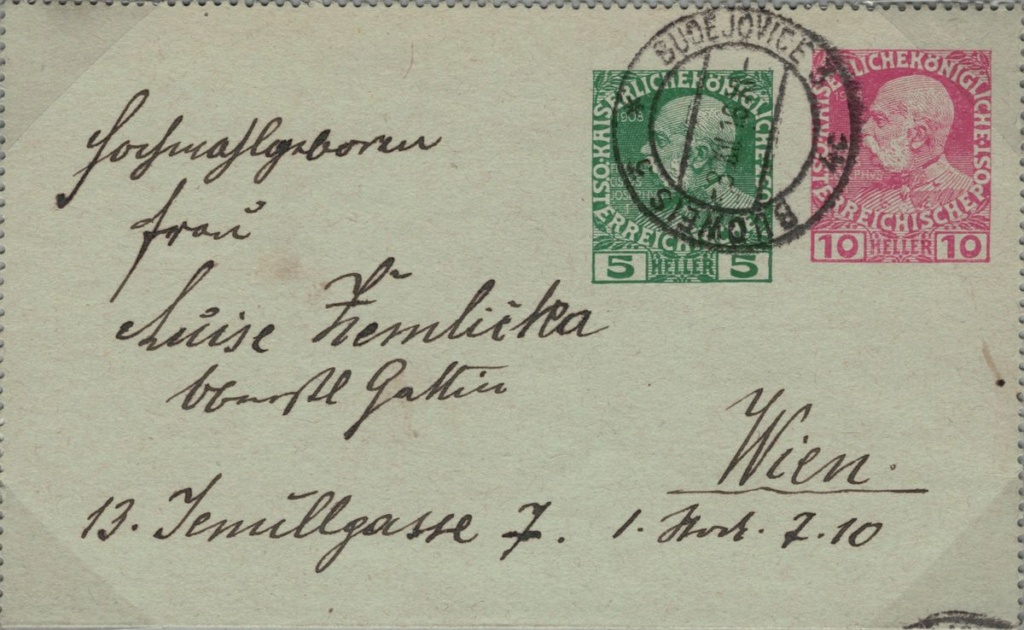 BUDĚJOVICE 3
BUDWEIS 3
KAISERLICHE KÖNIGLICHE ÖSTERREICHISCHE POST
1908
5 HELLER 5
KAISERLICHE KÖNIGLICHE ÖSTERREICHISCHE POST
10 HELLER 10
Hochwohlgeboren
Frau
Luise Žemlička
Oberstl Gattin
Wien.
13. Jenullgasse 7. 1. Stock. T. 10